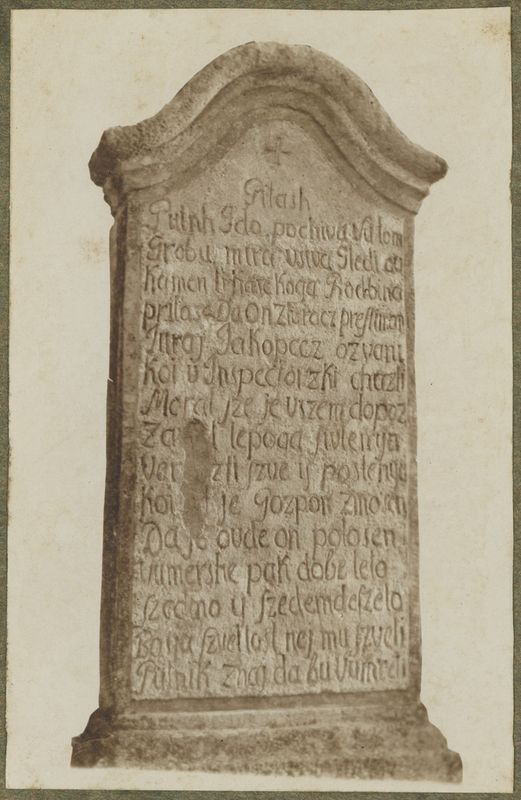 Pitash
Putnik Gdo pochiva V tom
Grobu, mira vsiva Sledi ov
Kamen
prilase Da On Ztaracz
Juraj Jakopecz ozvani
Koi v Inspectorzki chazti
Moral sze je vszem dopoz
Za lepoga sivlenya
Ver szti szve y postenya
Koi je Gozpon zmosen
Da je ovde on polosen,
Vumershe pak dobe leto
szedmo y szedemdeszeto
Bosja szvetlost nej mu szveti
Putnik znaj da bu Vumreti